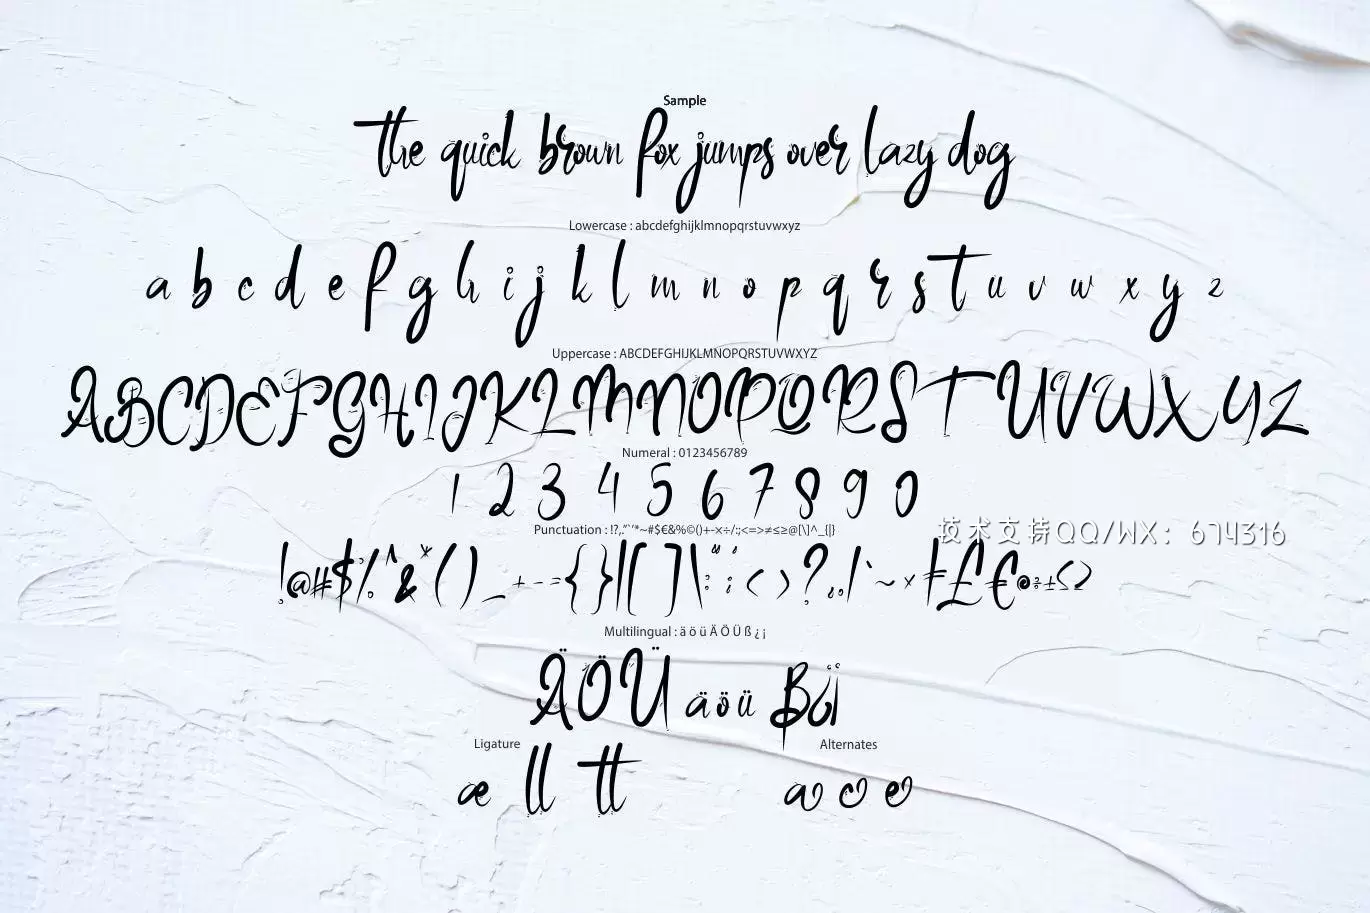 Sample
the quick brown fox jumps over lazy dog
Lowercase : abcdefghijklmnopqrstuvwxyz
a b c d e f g h i j k l m n o p q r s t u v w x y z
Uppercase : ABCDEFGHIJKLMNOPQRSTUVWXYZ
A B C D E F G H I J K L M N O P Q R S T U V W X Y Z
Numeral : 0123456789
1 2 3 4 5 6 7 8 9 0
Punctuation : !?,."`'*~#$€&%©()+-×÷/:;<=>≠≤≥@[\]^_{|}
技术支持QQ/WX: 674316
!@#$%^&*()_+-={}|[]\"':;<>?,./`~×¥£€©÷±≤≥
Multilingual : ä ö ü Ä Ö Ü ß ¿ ¡
Ä Ö Ü ä ö ü ß ¿ ¡
Ligature Alternates
æ ll tt a c e